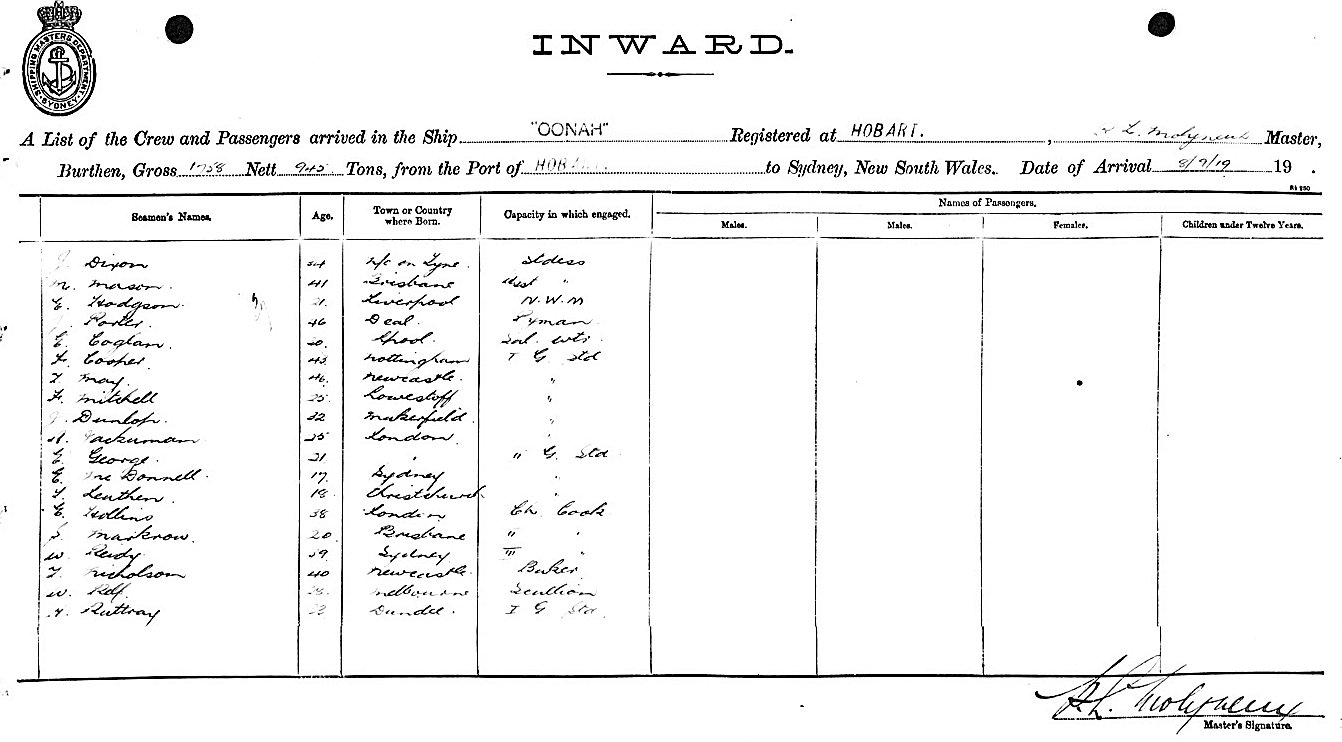 SHIPPING MASTERS DEPARTMENT
SYDNEY
INWARD.
A List of the Crew and Passengers arrived in the Ship "OONAH" Registered at HOBART. , L. Molyneux Master,
Burthen, Gross 1758 Nett 945 Tons, from the Port of HOBART. to Sydney, New South Wales. Date of Arrival 8/7/19 19 .
Seamen's Names. Age. Town or Country where Born. Capacity in which engaged. Names of Passengers.
Males. Males. Females. Children under Twelve Years.
Dixon 34 N/C on Tyne. Stdess
M. Mason. 41 Brisbane "
E. Hodgson. 21. Liverpool N.W.M
Porter. 46 Deal. P'man
E. Coglan. 20. L'pool. Sal. Wtr.
F. Cooper. 43 Nottingham I G Std
T. May. 46. Newcastle. "
F. Mitchell 25 Lowestoff "
Dunlop. 32 Makerfield. "
25 London. "
E. George. 21 " " G. Std
E. McDonnell. 17. Sydney "
Leuthen. 18. Christchurch "
E. Hollins 38 London Ch. Cook
S. Markrow. 20. Brisbane " "
W. Reidy 59. Sydney III "
T. Nicholson 40 Newcastle. Baker
W. Melbourne Scullion
Ruttray Dundee. I G Std
L. Molyneux
Master's Signature.